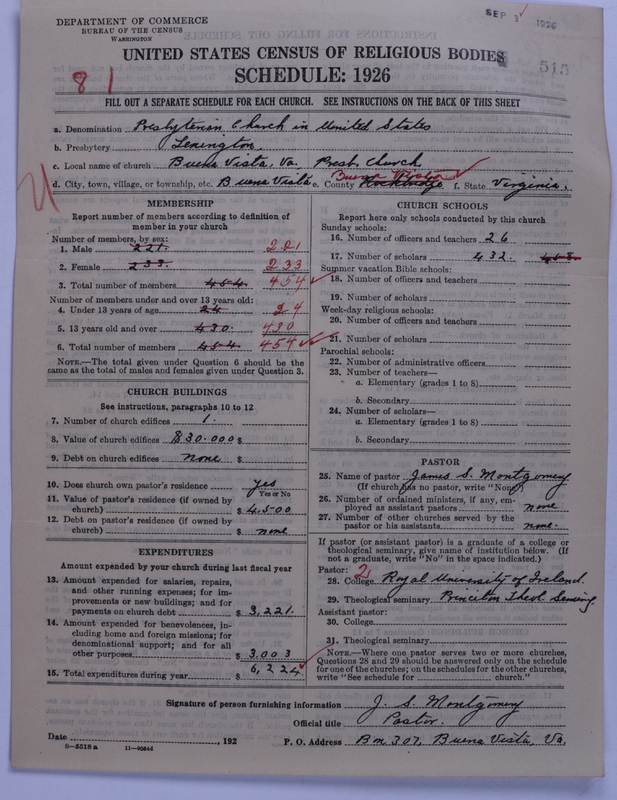 DEPARTMENT OF COMMERCE
BUREAU OF THE CENSUS
WASHINGTON
SEP 3 1926
515
8 1
UNITED STATES CENSUS OF RELIGIOUS BODIES
SCHEDULE: 1926
FILL OUT A SEPARATE SCHEDULE FOR EACH CHURCH. SEE INSTRUCTIONS ON THE BACK OF THIS SHEET
a. Denomination Presbyterian Church in United States
b. Presbytery Lexington
c. Local name of church Buena Vista, Va. Presb. Church
d. City, town, village, or township, etc. Buena Vista e. County Rockbridge Buena Vista f. State Virginia.
MEMBERSHIP
Report number of members according to definition of
member in your church
Number of members, by sex:
1. Male 221. 221
2. Female 233. 233
3. Total number of members 454. 454
Number of members under and over 13 years old:
4. Under 13 years of age 24 24
5. 13 years old and over 430. 430
6. Total number of members 454. 454
NOTE.—The total given under Question 6 should be
same as the total of males and females given under Question 3.
CHURCH BUILDINGS
See instructions, paragraphs 10 to 12
7. Number of church edifices 1.
8. Value of church edifices $30.000 $
9. Debt on church edifices None $
10. Does church own pastor's residence yes
Yes or No
11. Value of pastor's residence (if owned by
church) $ 4500
12. Debt on pastor's residence (if owned by
church) $ none
EXPENDITURES
Amount expended by your church during last fiscal year
13. Amount expended for salaries, repairs,
and other running expenses; for im-
provements or new buildings; and for
payments on church debt $ 3,221.
14. Amount expended for benevolences, in-
cluding home and foreign missions; for
denominational support; and for all
other purposes $ 3.003
15. Total expenditures during year $ 6,224
CHURCH SCHOOLS
Report here only schools conducted by this church
Sunday schools:
16. Number of officers and teachers 26
17. Number of scholars 432. 458
Summer vacation Bible schools:
18. Number of officers and teachers
19. Number of scholars
Week-day religious schools:
20. Number of officers and teachers
21. Number of scholars
Parochial schools:
22. Number of administrative officers
23. Number of teachers—
a. Elementary (grades 1 to 8)
b. Secondary
24. Number of scholars—
a. Elementary (grades 1 to 8)
b. Secondary
PASTOR
25. Name of pastor James S. Montgomery
(If church has no pastor, write "None")
26. Number of ordained ministers, if any, em-
ployed as assistant pastors none
27. Number of other churches served by the
pastor or his assistants none.
If pastor (or assistant pastor) is a graduate of a college or
theological seminary, give name of institution below. (If
not a graduate, write "No" in the space indicated.)
Pastor: 2
28. College Royal University of Ireland.
29. Theological seminary Princeton Theol.
Assistant pastor:
30. College
31. Theological seminary
NOTE.—Where one pastor serves two or more churches,
Questions 28 and 29 should be answered only on the schedule
for one of the churches; on the schedules for the other churches,
write "See schedule for church."
Signature of person furnishing information J. S. Montgomery
Official title Pastor.
Date , 192 P. O. Address Bx 307, Buena Vista, Va.
8—5518 a 11—9554d